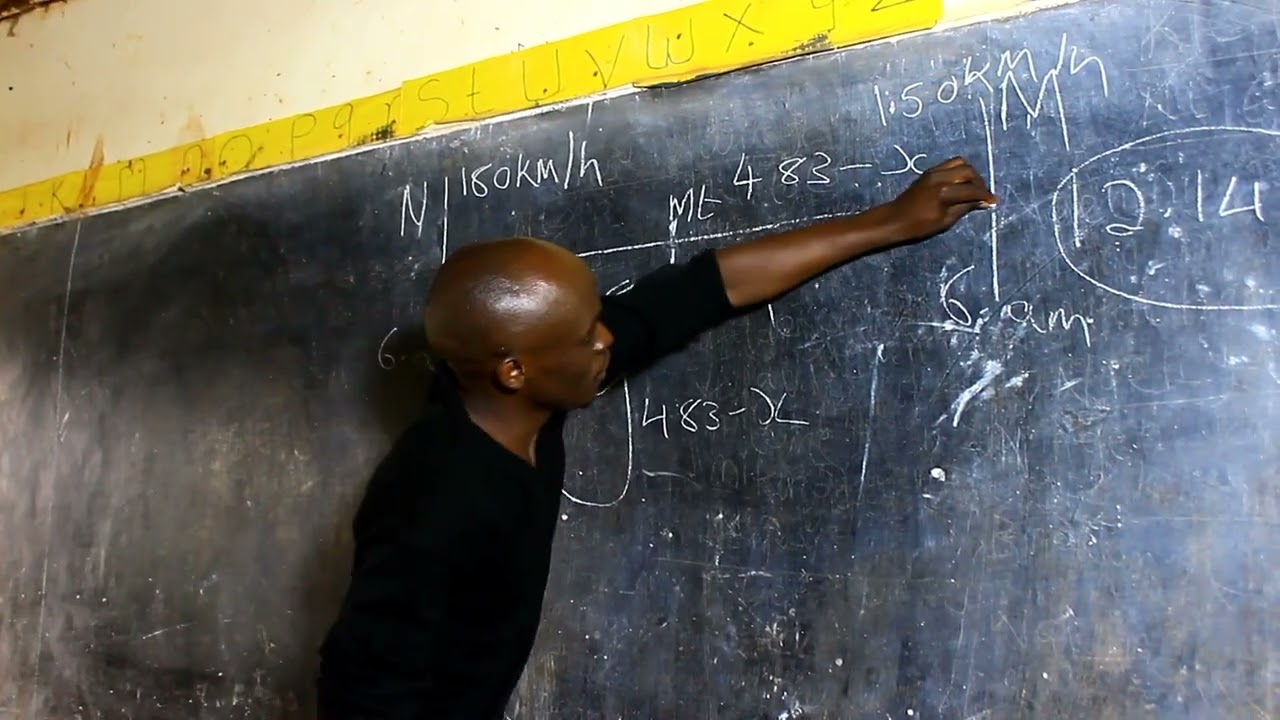 J K L M N O P q r S t U V W X y Z
1.50km/h
N 180km/h Mt 483-x M
12.14
6. 6.am
483-x